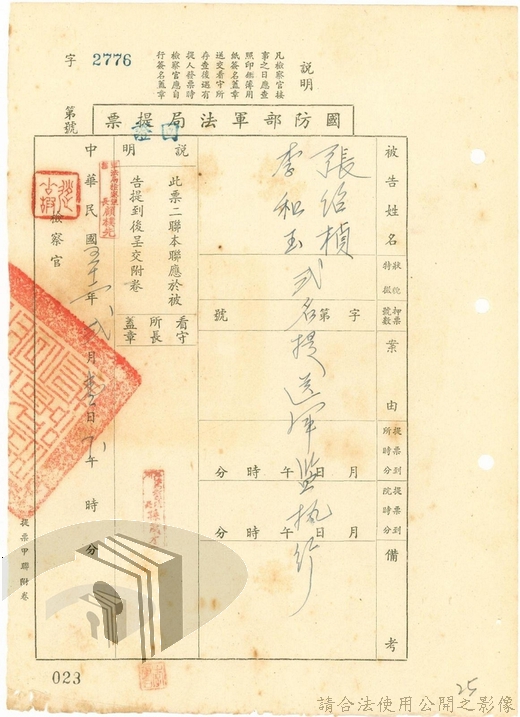 字 2776
第號
說明
凡檢察官接
事之日應查
照印鑑簿用
紙簽名蓋章
送交看守所
存查後遇有
提人發票時
檢察官應自
行簽名蓋章
國防部軍法局提票
被告姓名
特狀
徵況
押票
號數
案由
提票到
所時分
提票到
院時分
備考
張紹楨
李和玉
弍名提送軍監執行
字第號
月日午時分
月日午時分
說明
此票二聯本聯應於被
告提到後呈交附卷
看守
所長
蓋章
中華民國五十一年弍月 日下午 時 分
檢察官
提票甲聯附卷
023
25
請合法使用公開之影像